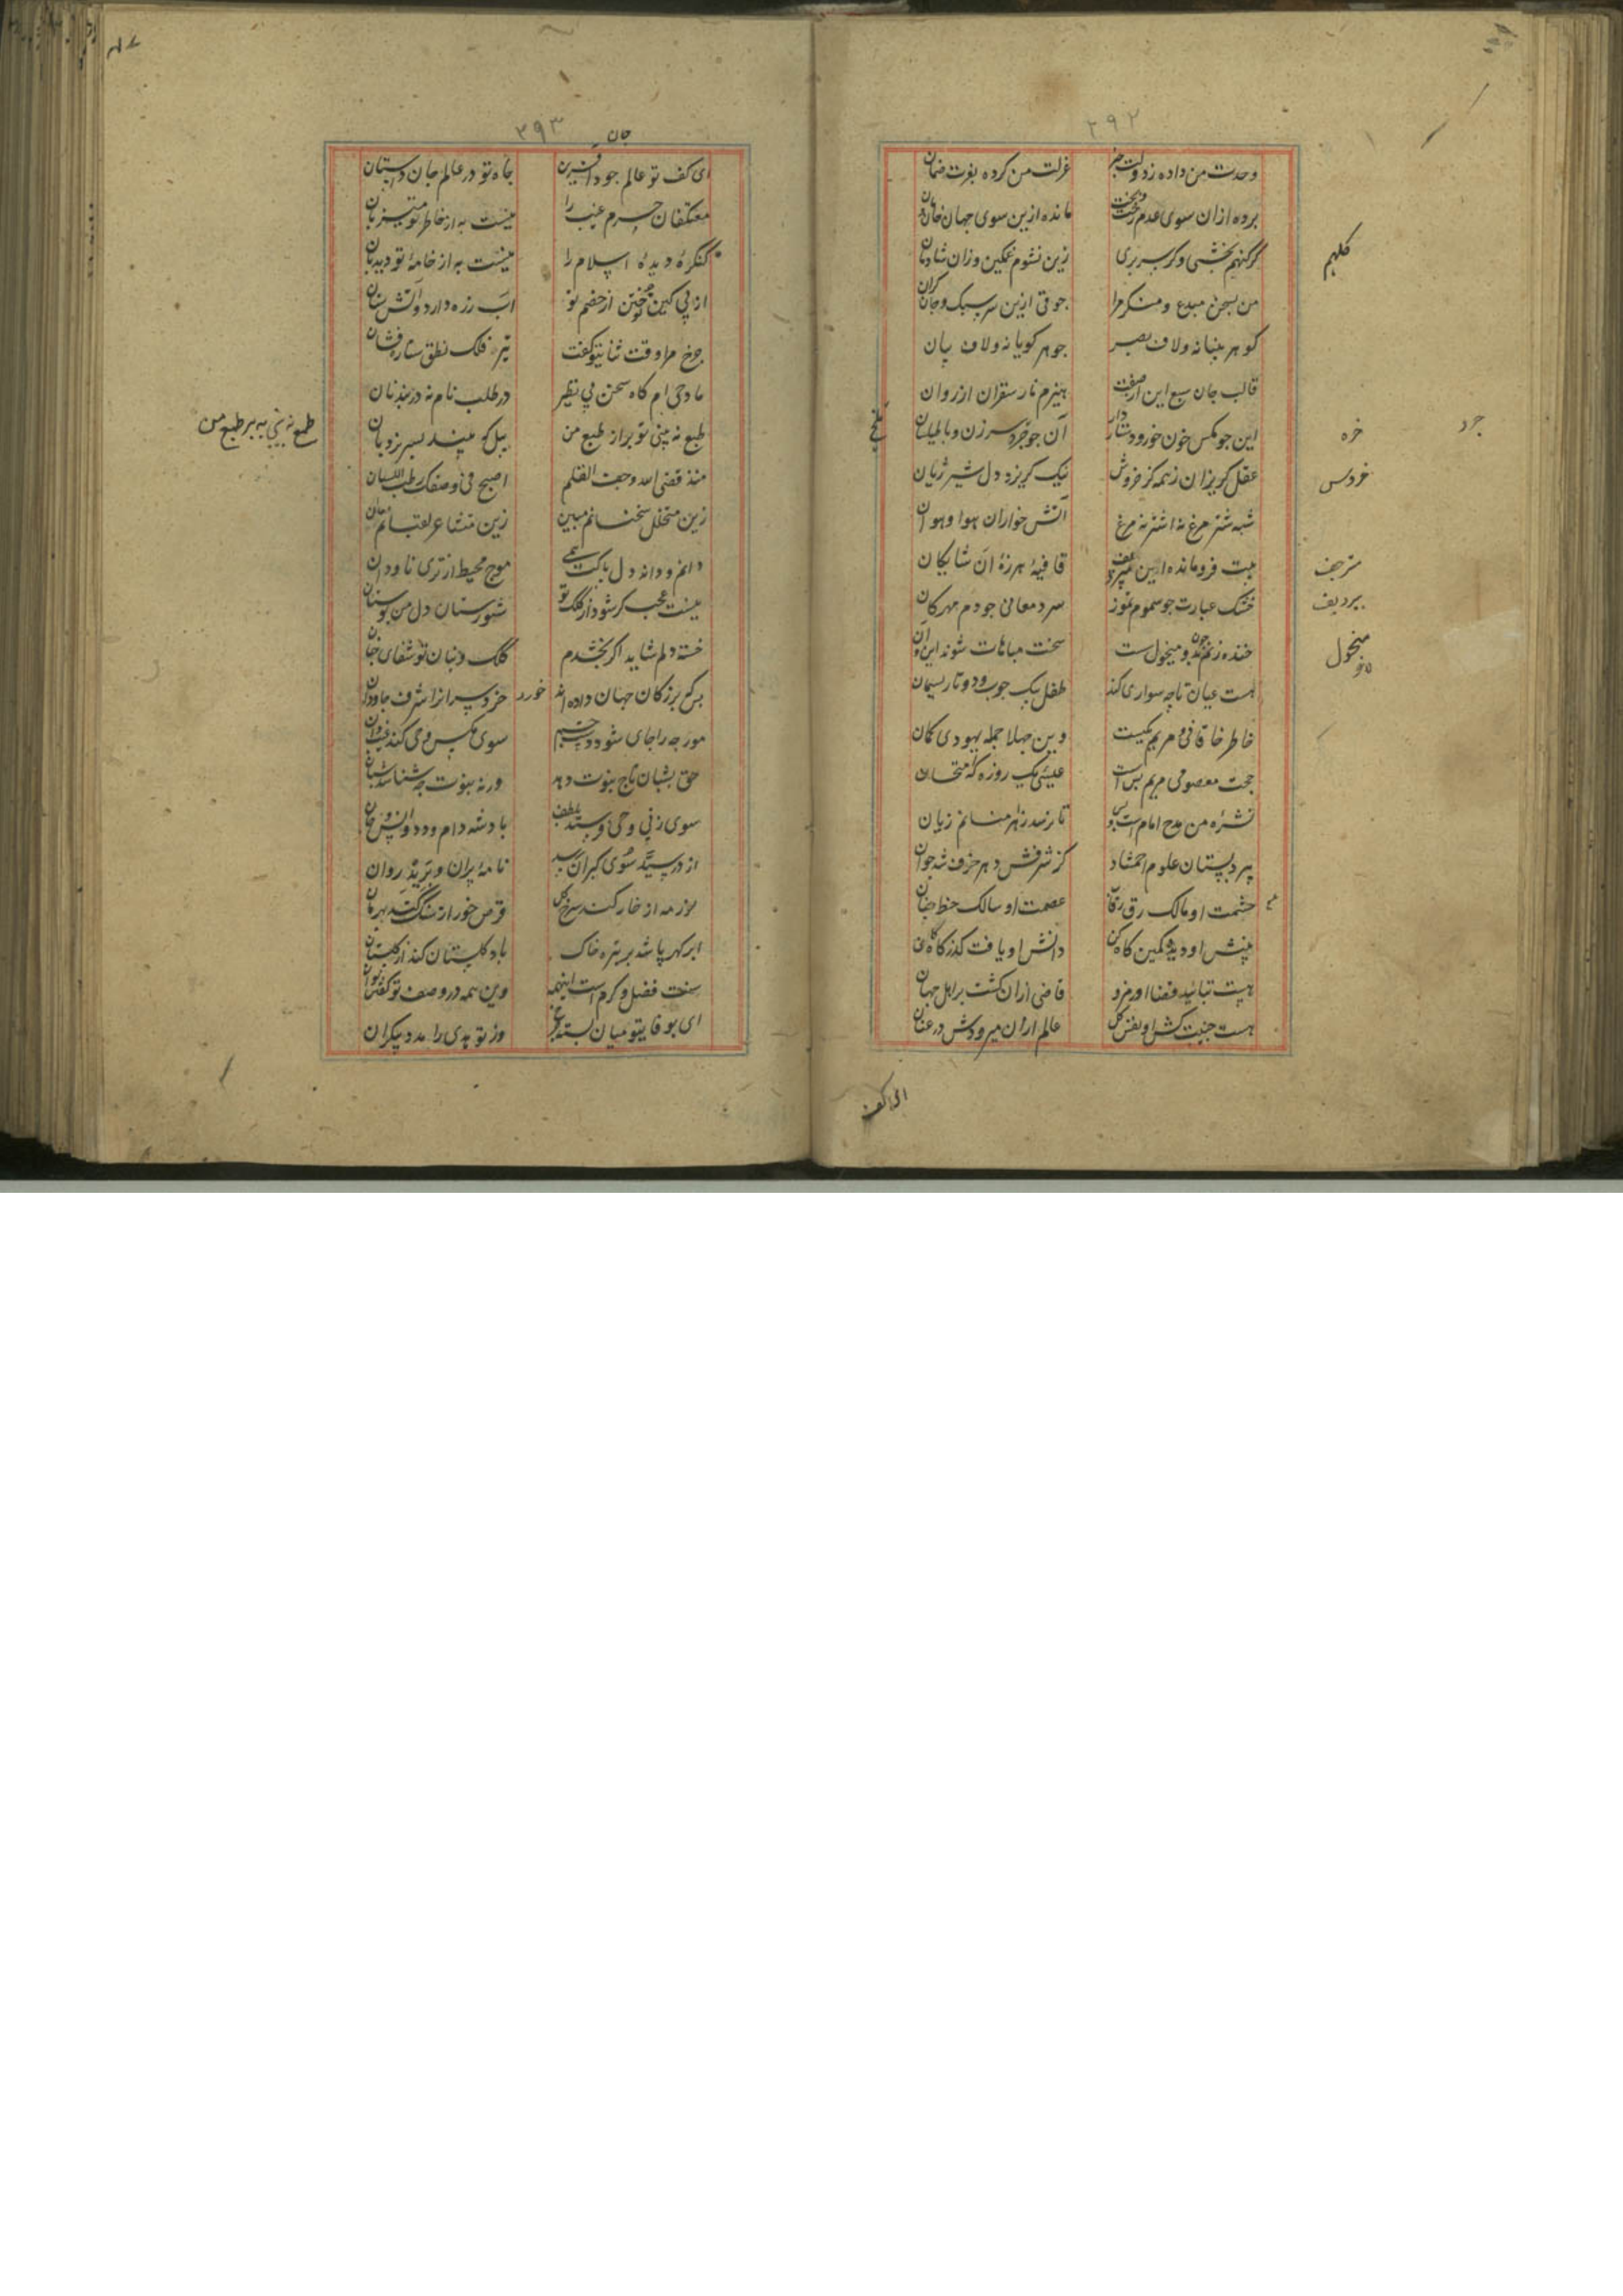 ۲۹۲
وحدت من داده ز دولت خبر عزلت من کرده بعزت ضمان
برده ازان سوی عدم رخت و بخت مانده ازین سوی جهان خان و مان
گر کنهم بخشی و گر سر بری زین نشوم غمگین و زان شادمان
کلهم
من بسخن مبدع و منکر مرا جوقی ازین سر سبک و جان گران
گوهر بینا نه و لاف بصر جوهر گویا نه و لاف بیان
قالب جان سبع این ار صفت هیزم نار سقران از روان
این جو مکس خون خور و دستار دار آن جو خره سرزن و با طیلسان
خره
جرد
عقل گریزان ز همه کز خروش نیک گریزد دل شیر ژیان
خروس
شبه شتر مرغ نه اشتر نه مرغ آتش خواران هوا و هوان
بیت فرومانده این قافیه هرزهٔ آن شایگان
خشک عبارت جو سموم تموز سرد معانی جو دم مهرگان
خنده زنم چون بدو منحول سخت مباهات شوند این و آن
منحول
هست عیان تا چه سواری کند طفل بیک چوب و دو تا ریسمان
خاطر خاقانی و مریم یکیست وین جهلا جمله یهودی گمان
حجت معصومی مریم بس است عیسی یک روزه گه امتحان
نشره من مدح امام است و بس تا نرسد زاهرمنانم زیان
پیر دبستان علوم احتشاد کز شرفش دهر خرف شد جوان
حشمت او مالک رق رقاب عصمت او سالک خط جنان
بینش او دید کمین گاه کن دانش او یافت گذرگاه کان
هیبت تبائید قضا اورمزد قاضی ازان گشت بر اهل جهان
هست جنیبت کش او نفس کل عالم ازان میرودش در عنان
ای کف
۲۹۳
جان
ای کف تو عالم جود آفرین جاه تو در عالم جان داستان
معتکفان حرم غیب را نیست به از خاطر تو میزبان
کنگرهٔ دیدهٔ اسلام را نیست به از خامهٔ تو دیدبان
از پی کین توختن از خصم تو آب زره دارد و آتش سنان
چرخ مرا وقت ثنای تو گفت تیر فلک نطق ستاره فشان
مادحی ام گاه سخن بی نظیر در طلب نام نه در بند نان
طبع نه بینی تو بر از طبع من بل که نیند بسر نردبان
طبع نه بینی به بر طبع من
منذ قضی الله و جف القلم اصبح فی وصفک رطب اللسان
زین متنحل سخنانم مبین زین متشاعر لقبانم مدان
دانم و داند دل پاکت همی موج محیط از تری ناودان
نیست عجب گر شود از کلک تو شورستان دل من بوستان
خسته دلم شاید اگر بخشدم کلک و بنان تو شفای جنان
بس که بزرگان جهان داده اند خرد سرانرا شرف جاودان
خورد
مورچه را جای شود دست جم سوی مکس وحی کند غیب دان
حق بشبان تاج نبوت دهد ورنه نبوت چه شناسد شبان
سوی زنی وحی فرستد بلطف پادشه دام و دد و انس و جان
از در سید سوی گبران رسید نامهٔ پران و برید روان
لوزمه از خار کند سرخ گل قرص خور از سنگ کند بهرمان
ابر گهر پاشد بر تیره خاک باد گلستان کند از گلستان
سنت فضل و کرم است اینهمه وین همه در وصف تو گفتن توان
ای بوفای تو میان بسته چرخ وز تو بدی را مدد بیکران